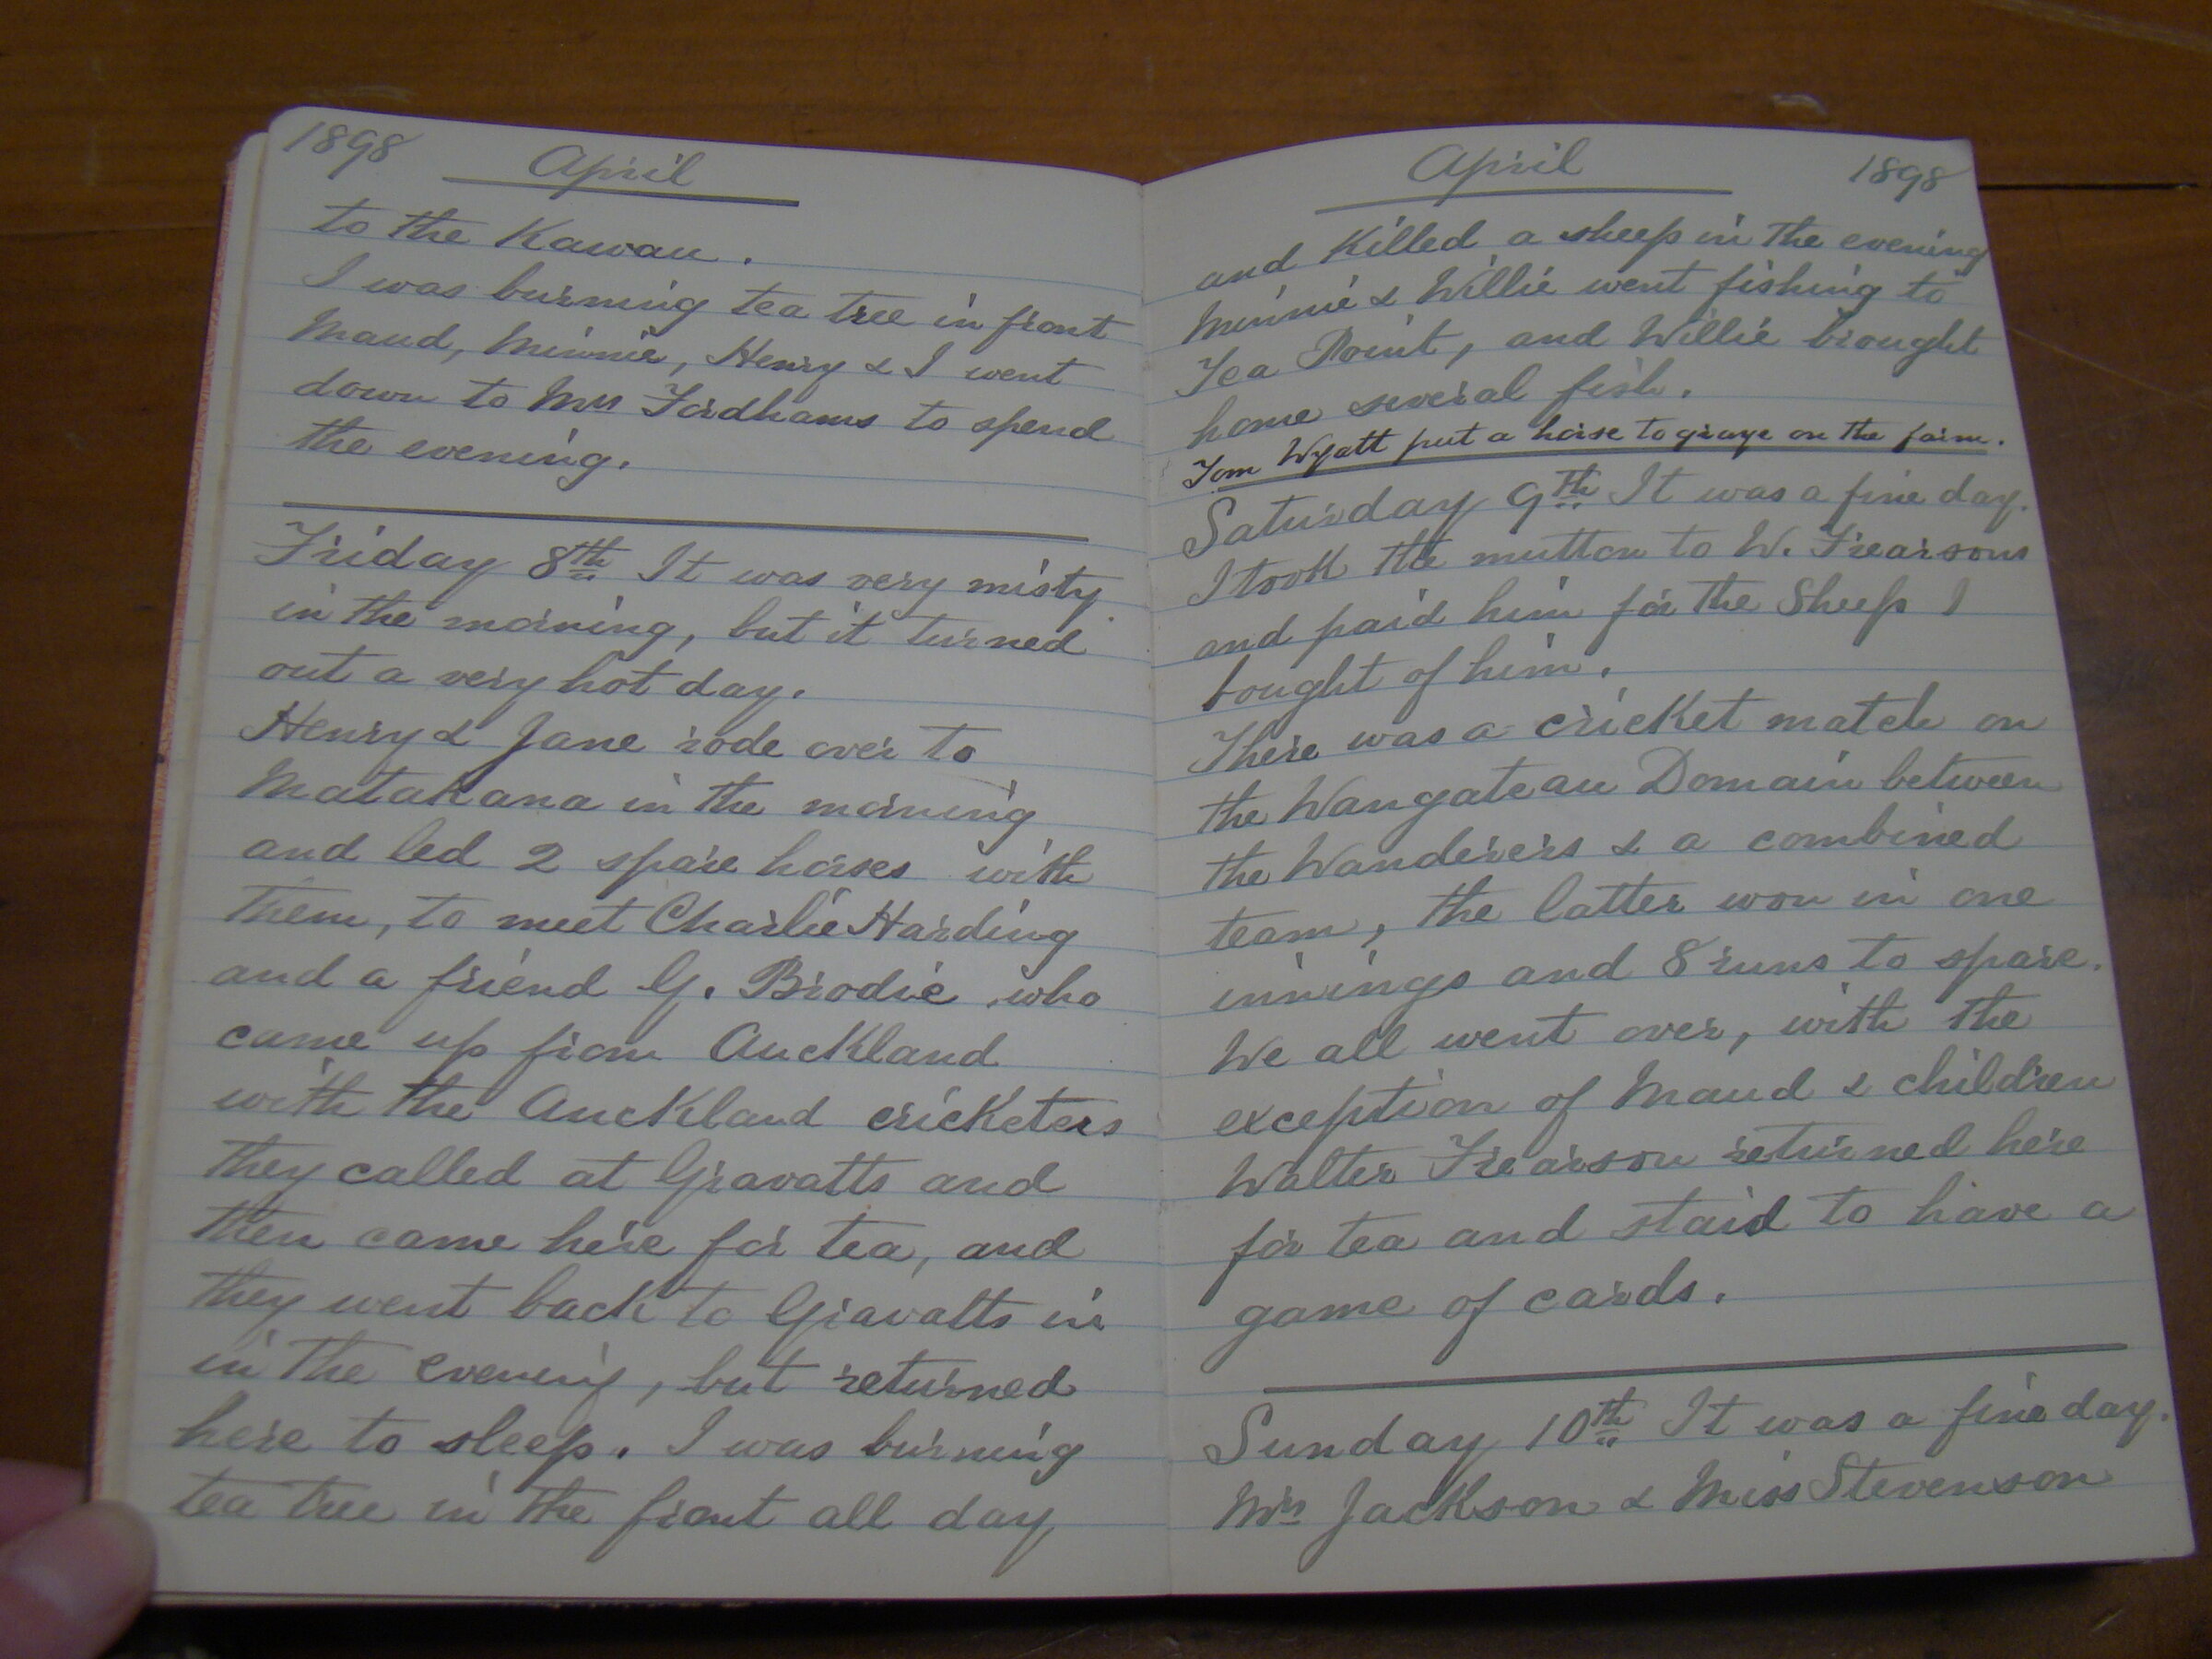 1898 April
to the Kawau.
I was burning tea tree in front
Maud, Minnie, Henry & I went
down to Mrs Fordhams to spend
the evening.
Friday 8th It was very misty
in the morning, but it turned
out a very hot day.
Henry & Jane rode over to
Matakana in the morning
and led 2 spare horses with
them, to meet Charlie Harding
and a friend G. Brodie who
came up from Auckland
with the Auckland cricketers
they called at Gravatts and
then came here for tea, and
they went back to Gravatts in
in the evening, but returned
here to sleep. I was burning
tea tree in the front all day
April 1898
and Killed a sheep in the evening
Minnie & Willie went fishing to
Tea Point, and Willie brought
home several fish.
Tom Wyatt put a horse to graze on the farm.
Saturday 9th It was a fine day.
I took the mutton to W. Frearsons
and paid him for the Sheep I
bought of him.
There was a cricket match on
the Wangateau Domain between
the Wanderers & a combined
team, the latter won in one
innings and 8 runs to spare.
We all went over, with the
exception of Maud & children
Walter Frearson returned here
for tea and staid to have a
game of cards.
Sunday 10th It was a fine day.
Mrs Jackson & Miss Stevenson